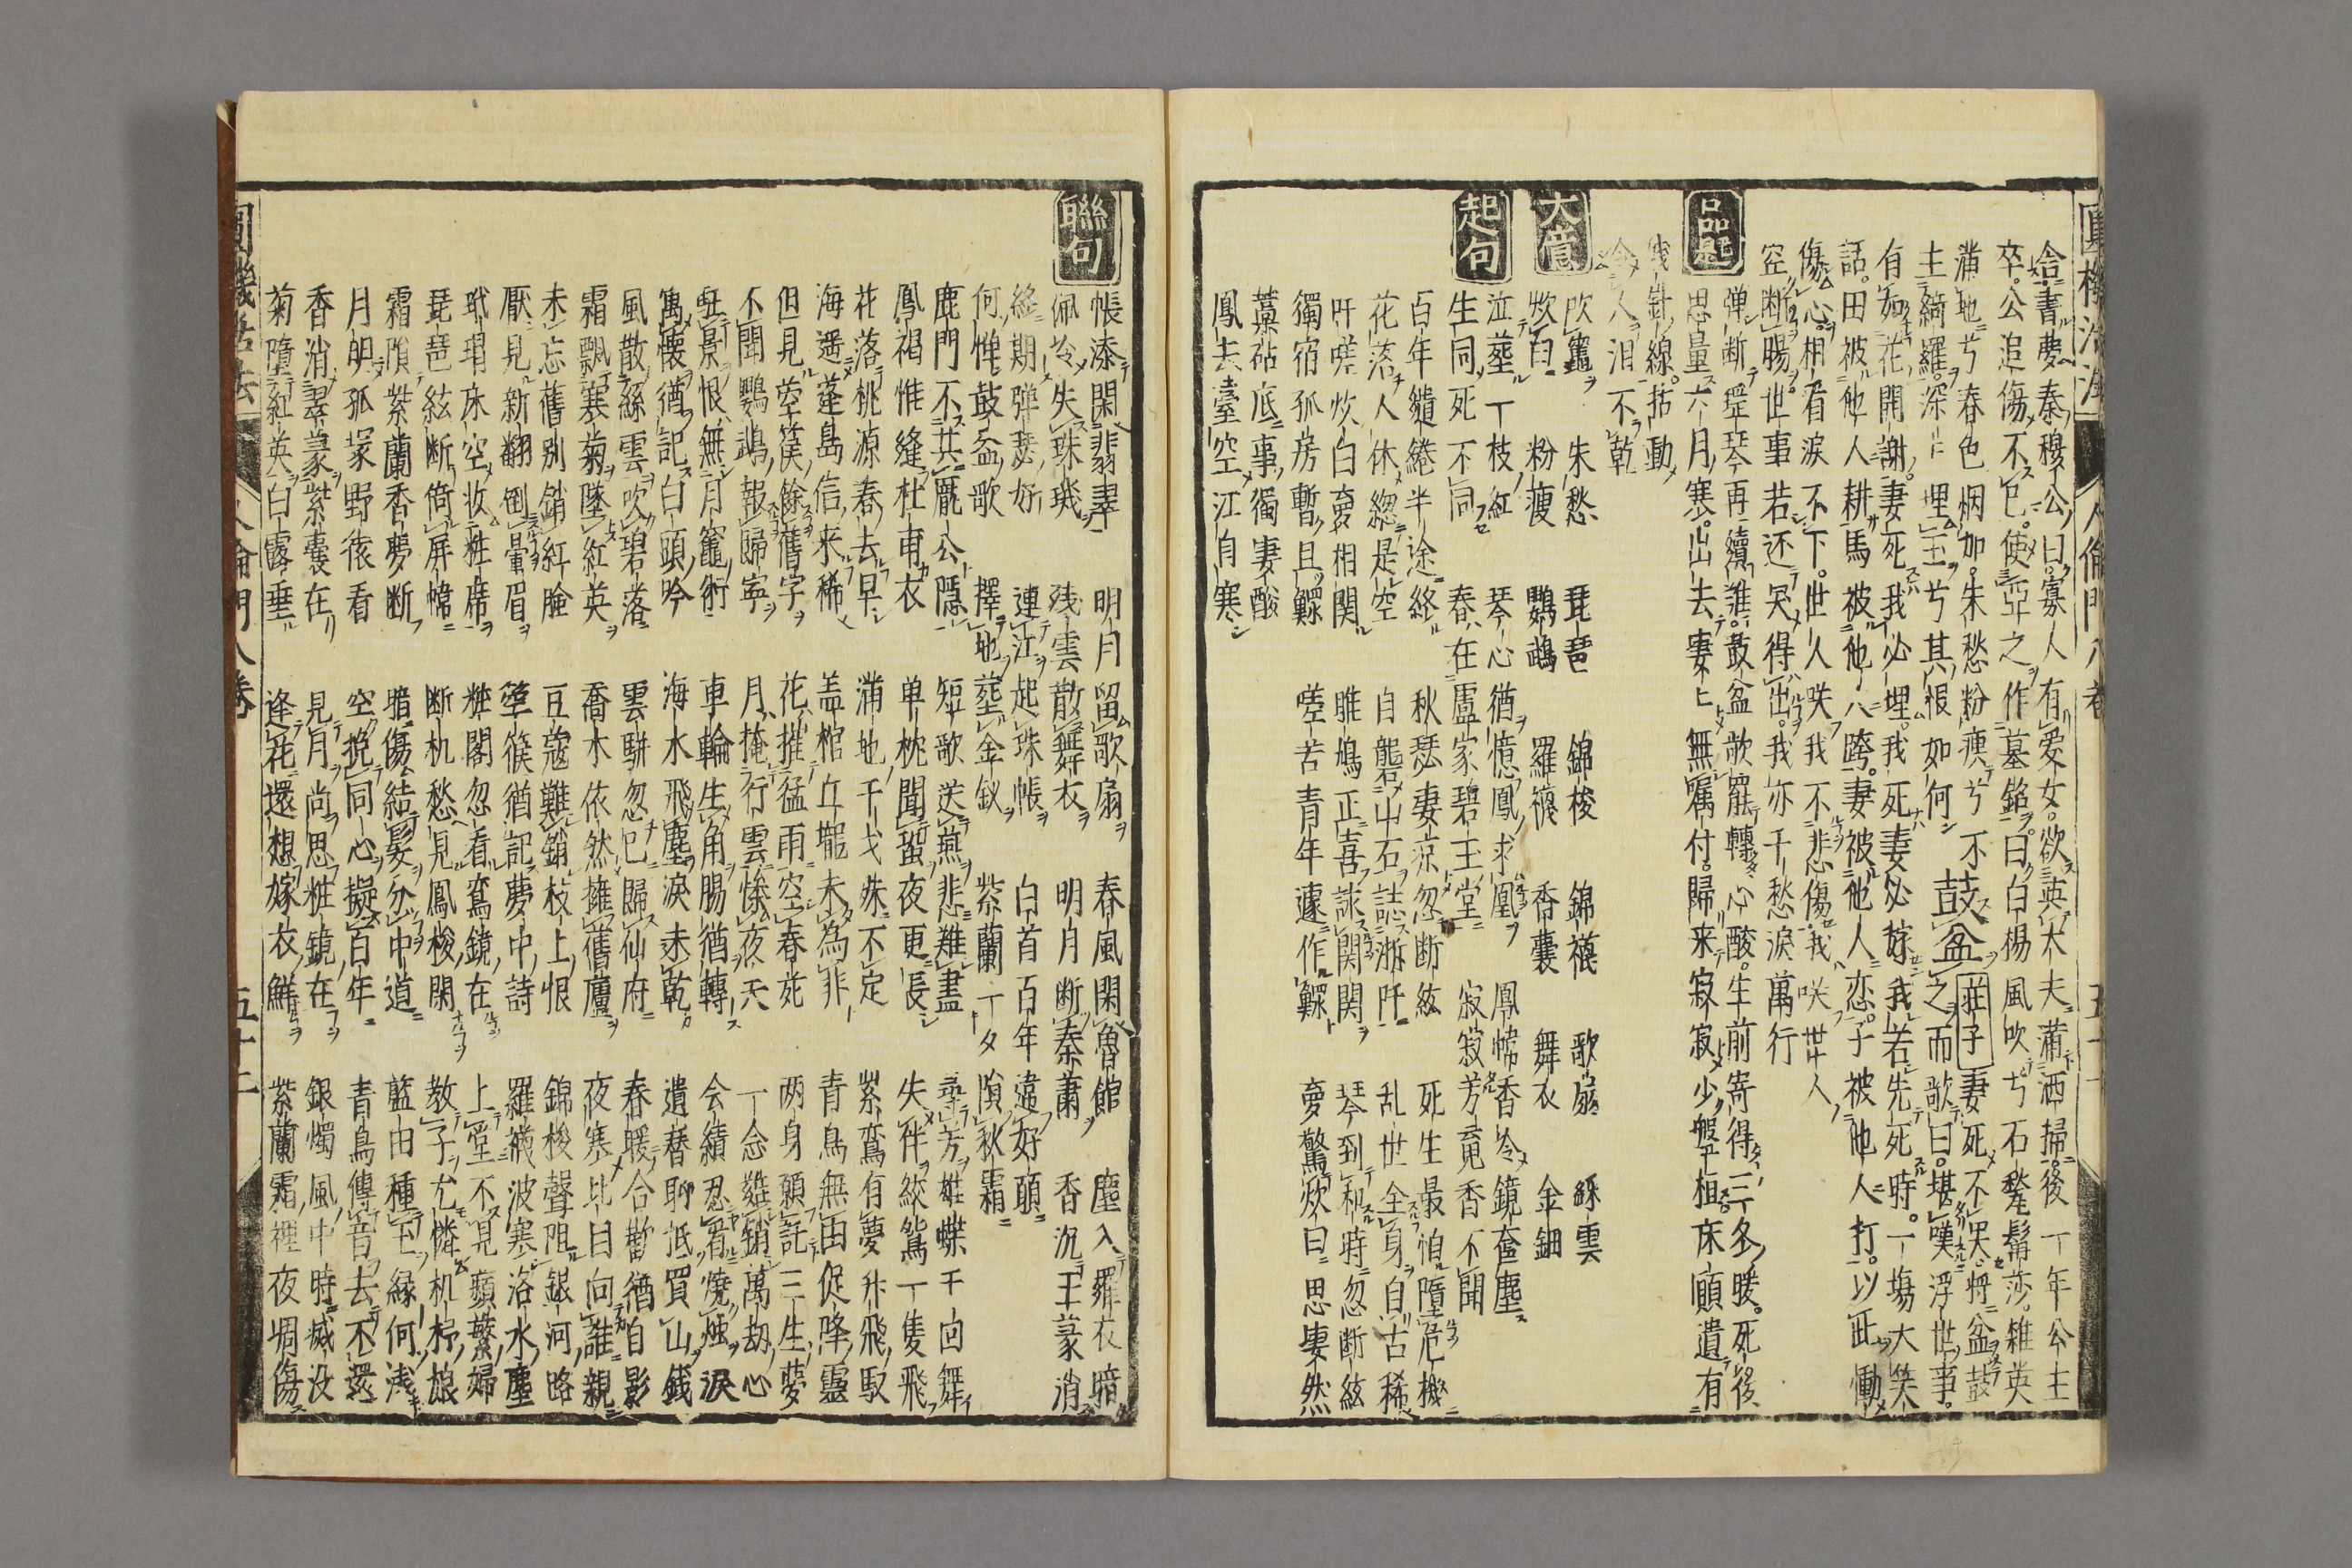 圓機活法 人倫門八卷 五十一
含書夢秦穆公曰寡人有愛女欲英大夫蒲洒掃後一年公主
卒公追傷不已使亞之作墓銘曰白楊風吹兮石鬖髯莎雜英
滿地兮春色烟加朱愁粉瘦兮不
主綺羅深深埋玉兮其恨如何 鼓盆 莊子妻死不哭將盆鼓
之而歌曰堪嘆浮世事
有如花開謝妻死我必埋我死妻必嫁我若先死時一塲大笑
話田被他人耕馬被他人跨妻被他人恋子被他人打以此慟
傷心相看淚不下世人咲我不悲傷我咲世人
空断膓世事若还哭得出我亦千愁淚萬行
品題
弹断瑤琴再續難鼓盆歌罷轉心酸生前寄得三冬暖死後
思量六月寒出去妻妻無囑付歸来寂寂少盤桓床頭遺有
残針線拈動
令人泪不乾
大意
吹竈 朱愁 琵琶 錦梭 錦襪 歌扇 綵雲
炊臼 粉瘦 鸚鵡 羅襪 香囊 舞衣 金鈿
起句
泣塟一枝紅 琴心猶憶鳳求凰 鳳幃香冷鏡奩塵
生同死不同 春在盧家碧玉堂 寂寂芳竟香不聞
百年繾綣半途終 秋瑟妻凉忽断絃 死生最怕墮危機
花落人休緫是空 自礱山石誌漸阡 乱世全身自古稀
吁嗟炊臼夐相関 雎鳩正喜詠関関 琴到和時忽断絃
獨宿孤房暫且鰥 嗟苦青年遽作鰥 夢驚炊臼思悽然
藁砧底事獨妻酸
鳳去臺空江自寒
聯句
帳漆閑翡翠 明月留歌扇 春風閑魯館 塵入羅衣暗
佩冷失珠璣 残雲散舞衣 明月断秦蕭 香沉玉篆消
終期弹瑟好 連江起珠帳 白首百年違好頭
何惟鼓盆歌 擇地塟金釵 紫蘭一夕隕秋霜
鹿門不共龎公隠 短歌送燕悲難盡 尋芳雄蝶千回舞
鳳褐惟縫杜甫衣 单枕聞蛩夜更長 失伴綵鴛一隻飛
花落桃源春去早 滿地干戈殊不定 紫鸞有夢升飛馭
海遥蓬島信来稀 盖棺丘壠未為非 青鳥無由促降靈
但見茔篌餘舊字 花摧猛雨空春死 两身願託三生夢
不聞鸚鵡報歸寧 月掩行雲惨夜天 一念難銷萬刼心
駐景恨無月竈術 車輪生角腸猶轉 会績忍看燒燭淚
寓懐猶記白頭吟 海水飛塵淚未乾 遺替聊抵買山錢
風散絲雲吹碧落 雲駢忽已歸仙府 春暖合歡猶自影
霜飄寒菊墜紅英 喬木依然擁舊廬 夜寒比目向誰親
未忘舊别銷紅臉 豆蔻難銷枝上恨 錦梭聲阻銀河略
厭見新翻倒暈眉 箜篌猶記夢中詩 羅襪波寒洛水塵
玳瑁床空妆粧席 粧閣忽看鸞鏡在 上堂不見蘋蘩婦
琵琶絃断倚屏幃 断机愁見鳳梭閑 教子尤憐机杼娘
霜隕紫蘭香夢断 暗傷結髪分中道 藍田種玉縁何浅
月明孤塚野猿看 空挽同心擬百年 青鳥傳音去不還
香消翠篆紫囊在 見月尚思粧鏡在 銀燭風中時滅没
菊墮紅英白露垂 逢花還想嫁衣鮮 紫蘭霜裡夜凋傷
圓機活法 人倫門八卷 五十二